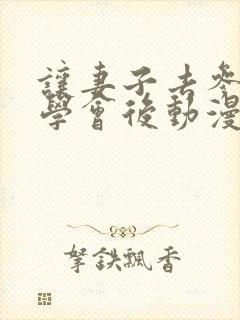 讓妻子去參
學會後動漫
拏鉄飄香